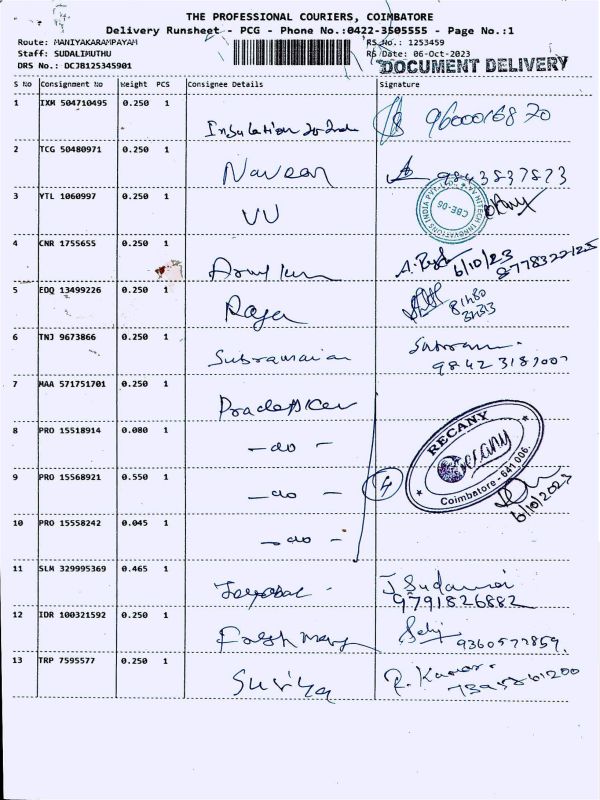 THE PROFESSIONAL COURIERS, COIMBATORE
Delivery Runsheet - PCG - Phone No.:0422-3505555 - Page No.:1
Route: MANIYAKARAMPAYAM RS No.: 1253459
Staff: SUDALIMUTHU RS Date: 06-Oct-2023
DRS No.: DCJB125345901 DOCUMENT DELIVERY
S No Consignment No Weight PCS Consignee Details Signature
1 IXM 504710495 0.250 1
2 TCG 50480971 0.250 1 Naveen
3 YTL 1060997 0.250 1 VV
CBE-06
4 CNR 1755655 0.250 1 6/10/23
5 EDQ 13499226 0.250 1 Raja
6 TNJ 9673866 0.250 1 Subramanian
7 MAA 571751701 0.250 1
8 PRO 15518914 0.080 1 - do -
9 PRO 15568921 0.550 1 - do - 4
RECANY
Recany
Coimbatore - 641 006.
6/10/2023
10 PRO 15558242 0.045 1 - do -
11 SLM 329995369 0.465 1
9791826882
12 IDR 100321592 0.250 1 9360577859.
13 TRP 7595577 0.250 1 Suriya